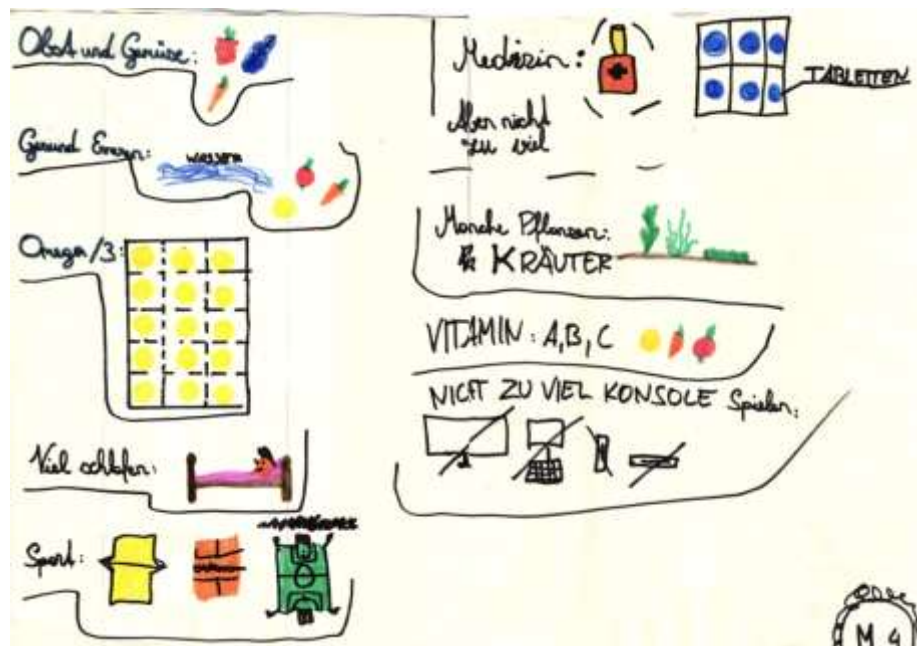 Obst und Gemüse:
Gesund Ernern:
WASSER
Omega/3:
Viel schlafen:
Sport:
Medizin:
TABLETTEN
Aber nicht
zu viel
Manche Pflanzen:
KRÄUTER
VITAMIN: A,B,C
NICHT ZU VIEL KONSOLE Spielen:
M 4